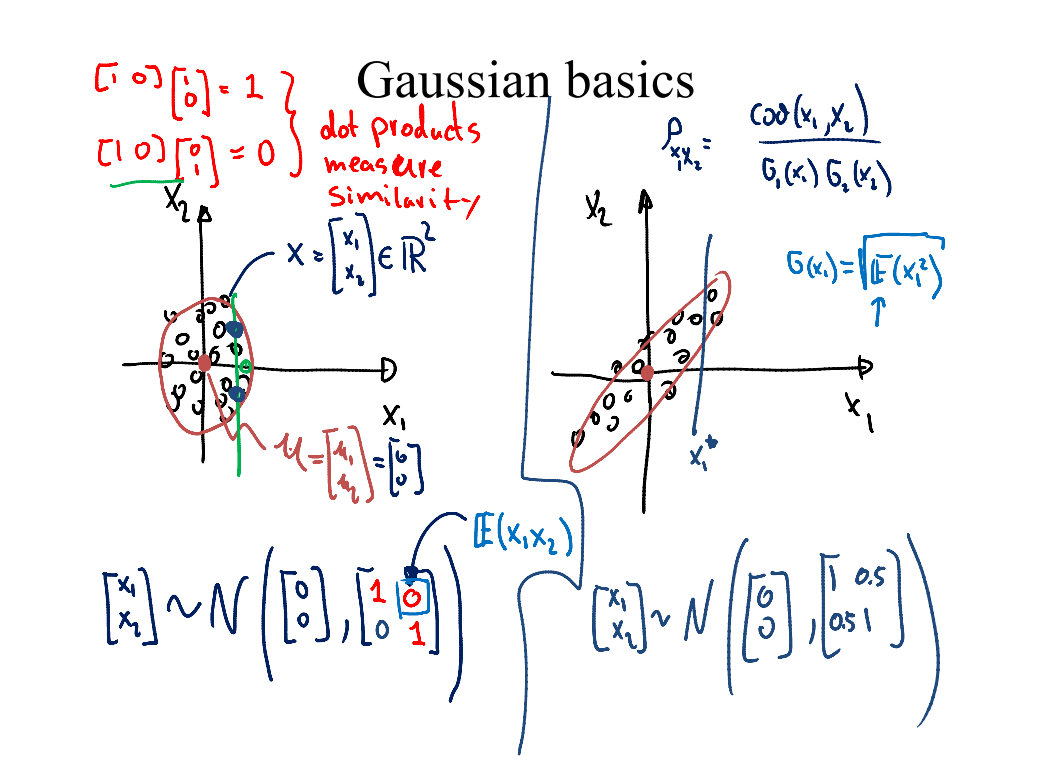 Gaussian basics
[1 0] [1 0] = 1
[1 0] [0 1] = 0
dot products
measure
similarity
x = [x₁ x₂] ∈ ℝ²
x₂
x₁
μ = [μ₁ μ₂] = [0 0]
𝔼(x₁x₂)
[x₁ x₂] ~ N([0 0], [1 0 0 1])
ρx₁x₂ = cov(x₁, x₂) / σ₁(x₁) σ₂(x₂)
σ(x₁) = √𝔼(x₁²)
x₂
x₁
x₁*
[x₁ x₂] ~ N([0 0], [1 0.5 0.5 1])